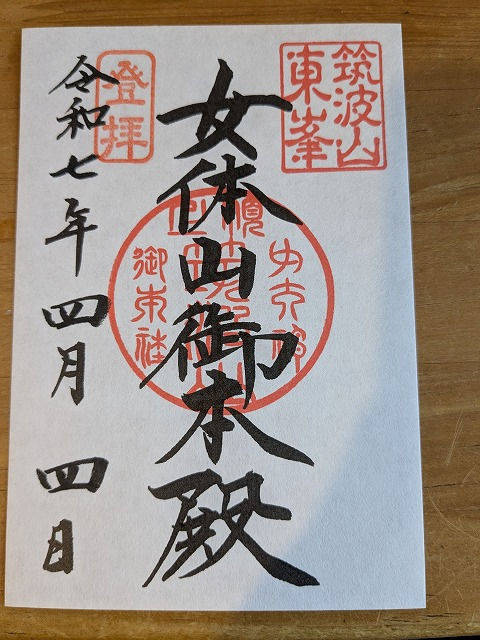 筑波山
東峯
女体山御本殿
登拝
令和七年四月四日